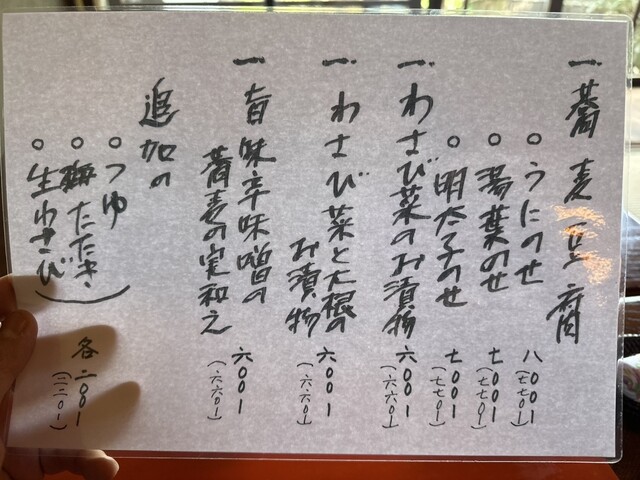 一. 蕎麦豆腐
○うにのせ 八〇〇ー
○湯葉のせ 七〇〇ー
(七七〇ー)
○明太子のせ 七〇〇ー
(七七〇ー)
一. わさび菜のお漬物 六〇〇ー
(六六〇ー)
一. わさび菜と大根の
お漬物 六〇〇ー
(六六〇ー)
一. 旨味辛味噌の
蕎麦の実和え 六〇〇ー
(六六〇ー)
追加の
○つゆ
○梅たたき
○生わさび
各二〇〇ー
(二二〇ー)